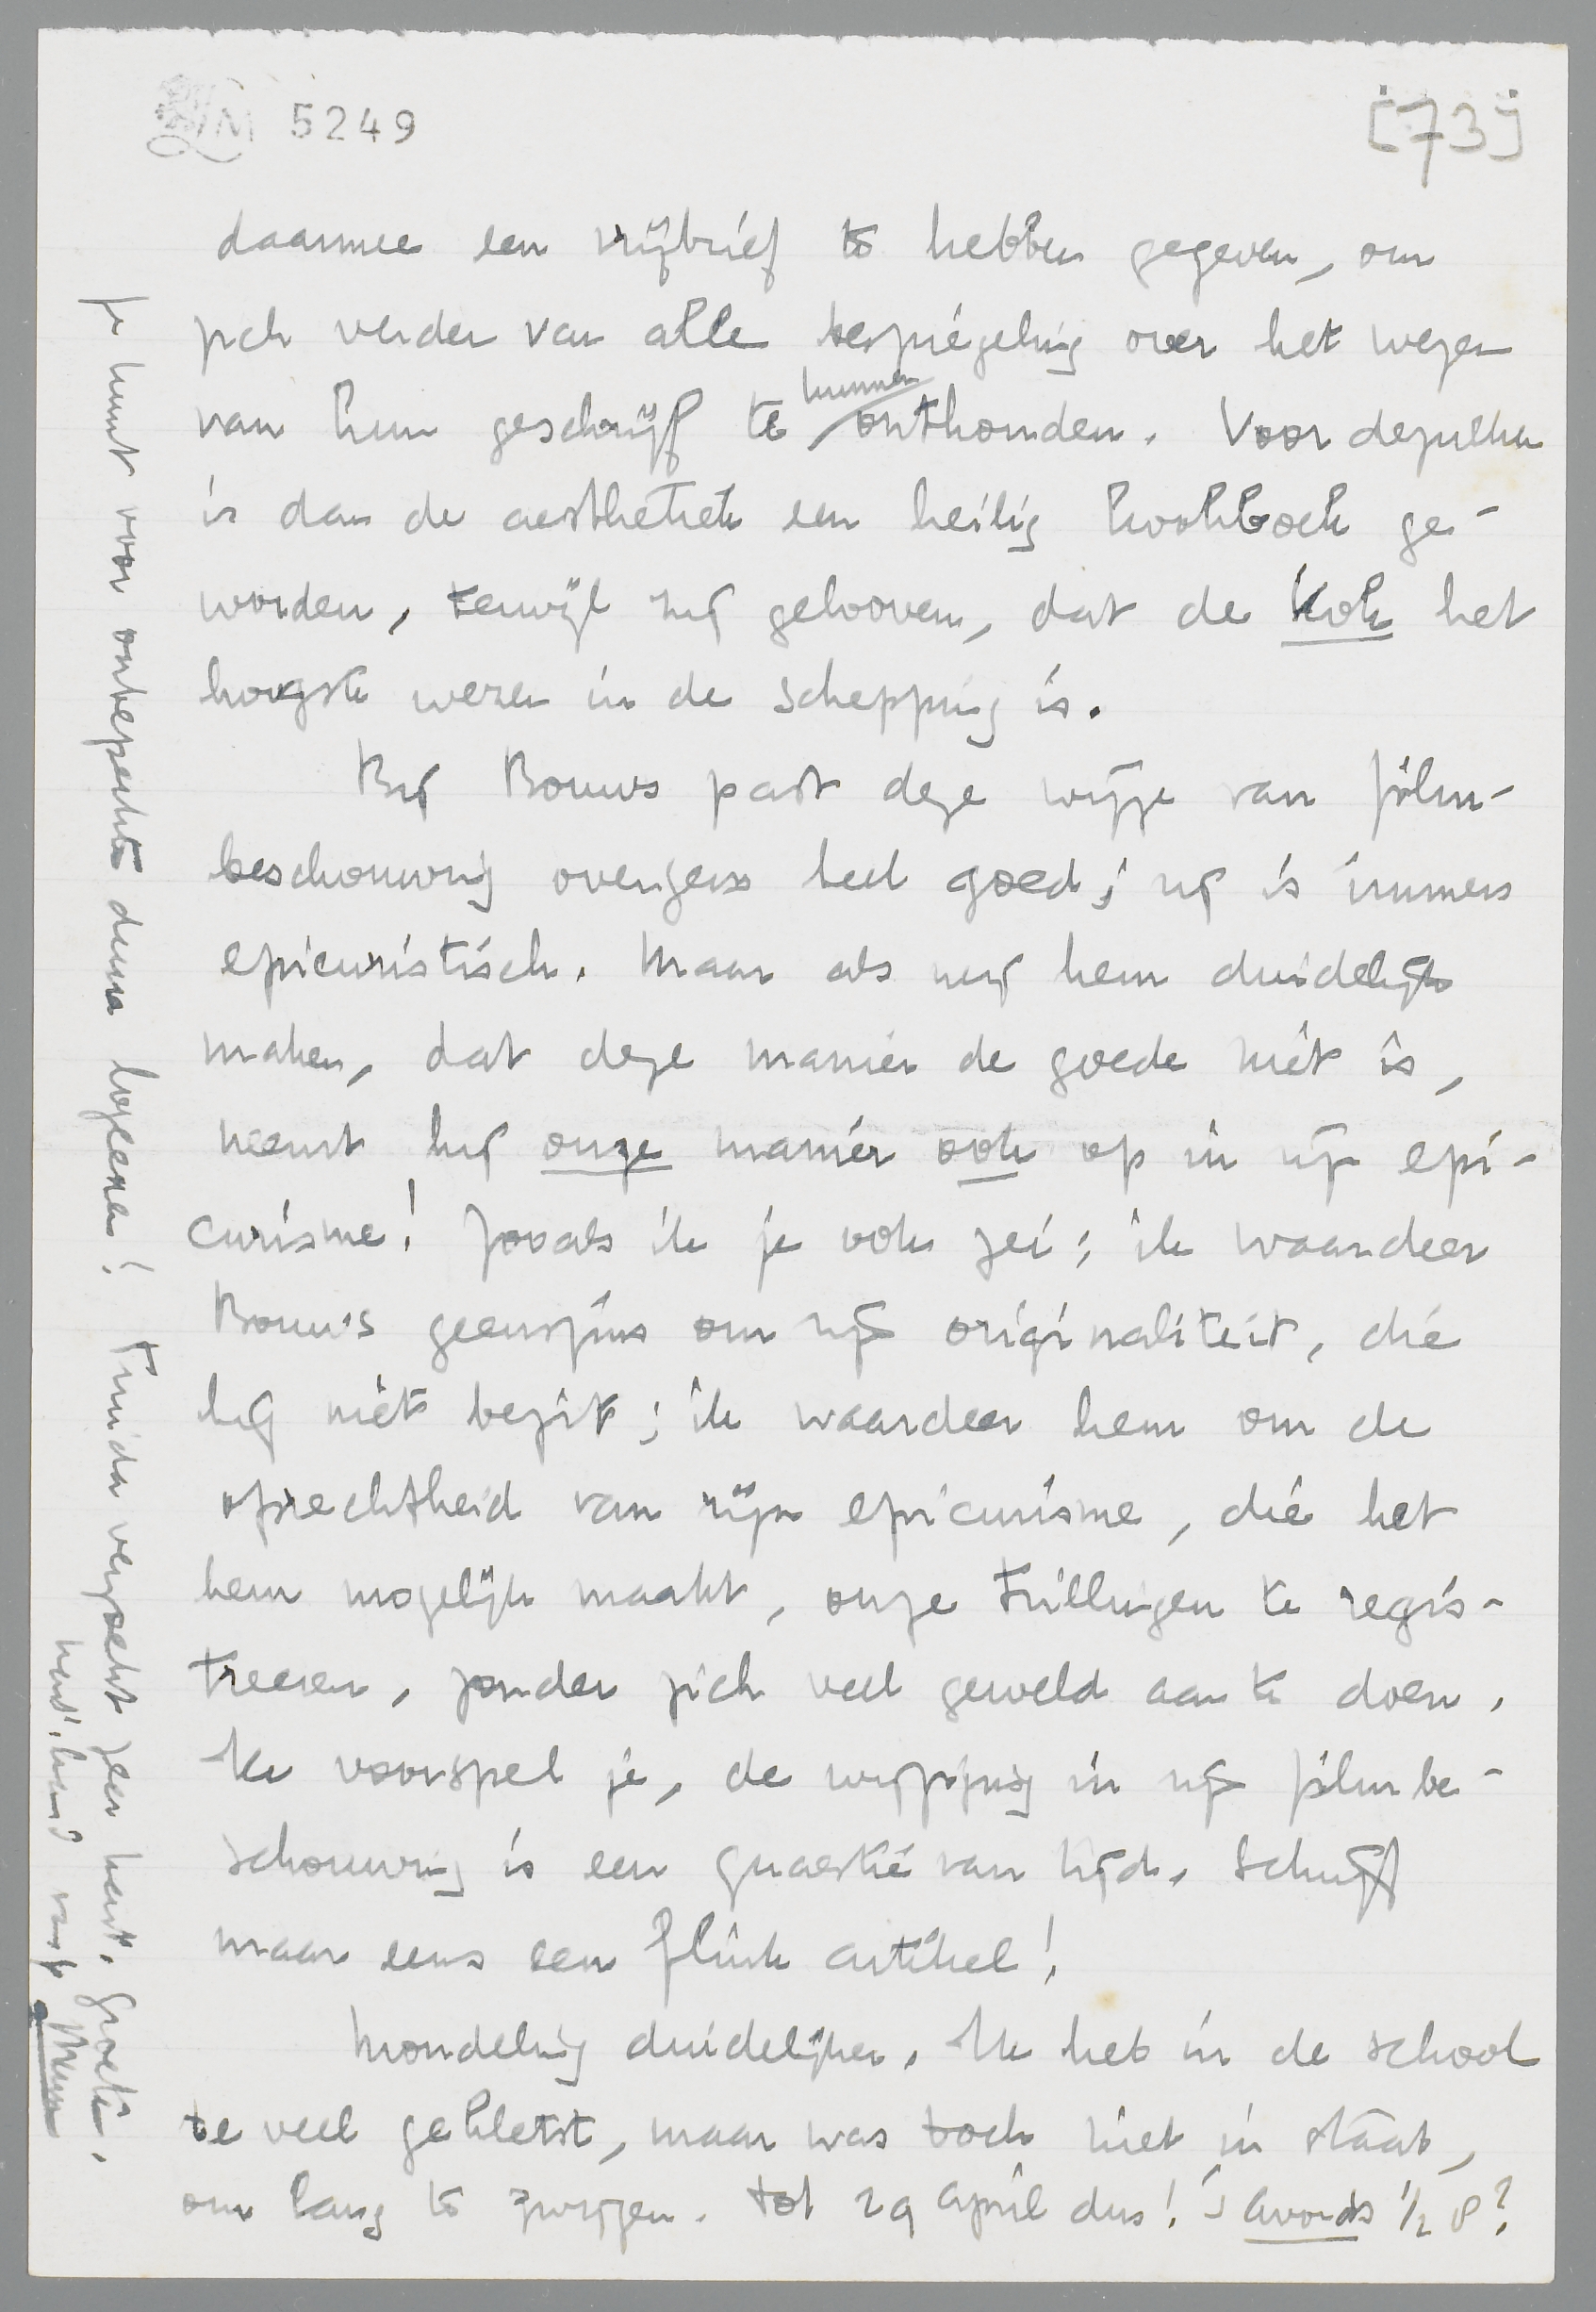 LM 5249
[73]
daarmee een vrijbrief te hebben gegeven, om
zich verder van alle bespiegeling over het wezen
van hun geschrijf te kunnen onthouden. Voor dezulken
is dan de aesthetiek een heilig kookboek ge-
worden, terwijl zij gelooven, dat de kok het
hoogste wezen in de schepping is.
Bij Bouws past deze wijze van film-
beschouwing overigens heel goed; hij is immers
epicuristisch. Maar als wij hem duidelijk
maken, dat deze manier de goede niet is,
neemt hij onze manier ook op in zijn epi-
curisme! Zooals ik je ook zei: ik waardeer
Bouws geenszins om zijn originaliteit, die
hij niet bezit; ik waardeer hem om de
oprechtheid van zijn epicurisme, die het
hem mogelijk maakt, onze trillingen te regis-
treeren, zonder zich veel geweld aan te doen.
Ik voorspel je, de wijziging in zijn filmbe-
schouwing is een quaestie van tijd. Schrijf
maar eens een flink artikel!
Mondeling duidelijker. Ik heb in de school
te veel gekletst, maar was toch niet in staat,
om lang te zwijgen. Tot 29 April dus! 's Avonds ½ 8?
Je kunt voor onbeperkten duur logeeren! Truida verzoekt geen kerst. Groeten,
hart. hand van je Menno